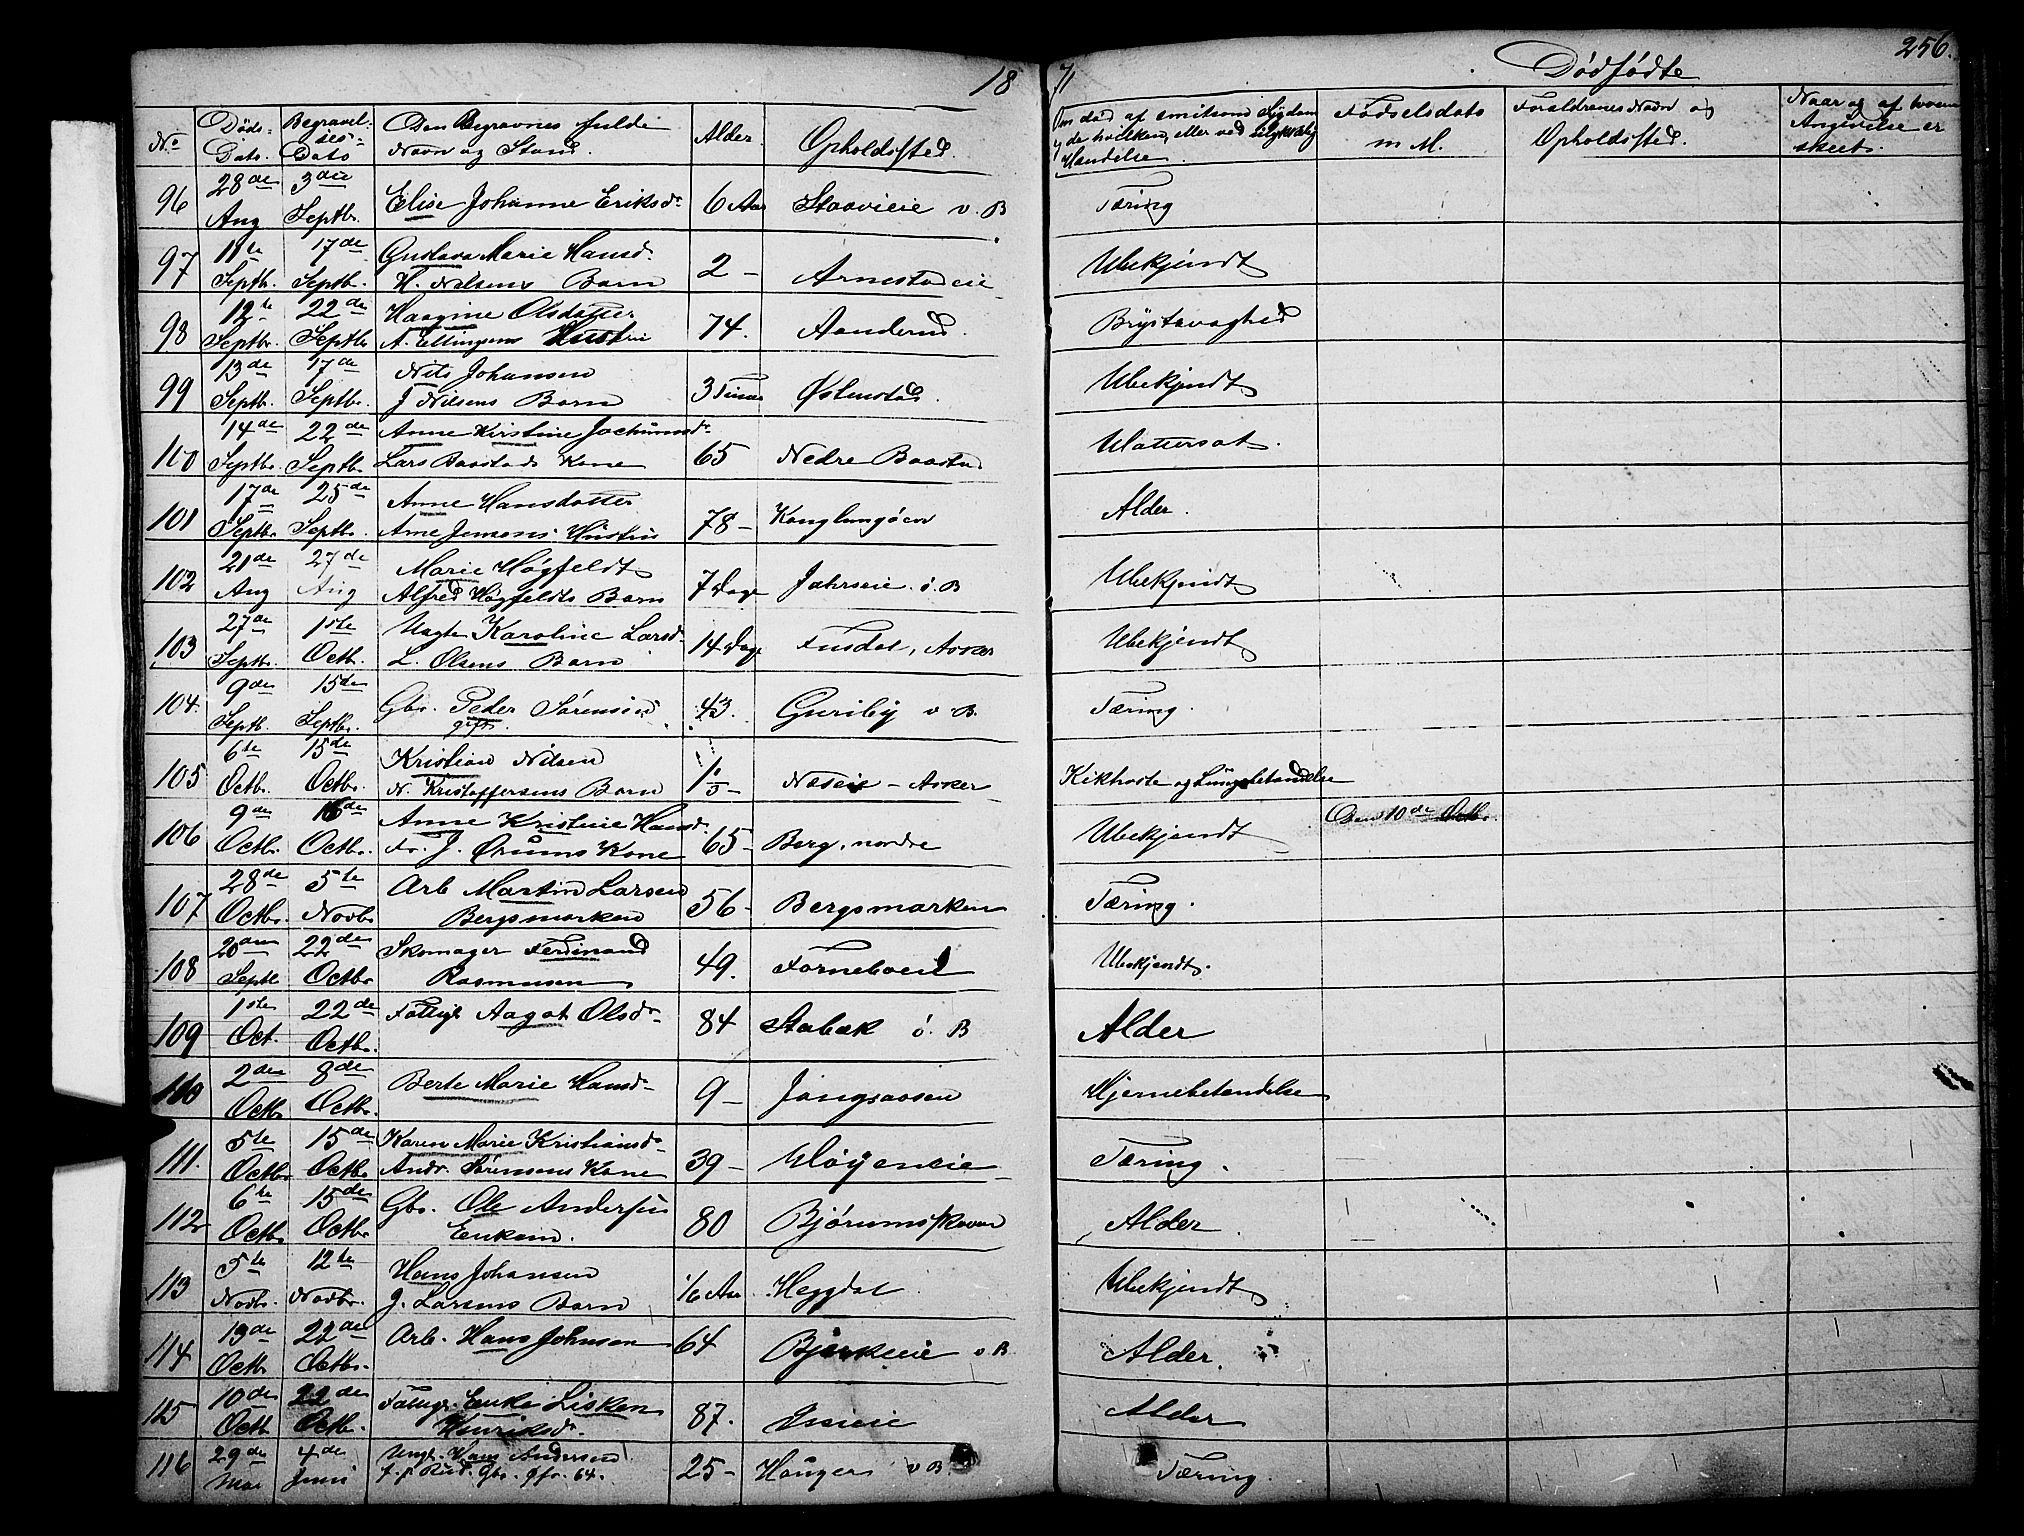 18
71
Dødfødte
256.
No
Døds-Dato.
Begravelses-Dato
Den Begravnes fulde Navn og Stand.
Alder.
Opholdssted.
Om død af smitsom Sygdom og da hvilken, eller ved Ulykkelig Hændelse.
Fødselsdato m M.
Forældrenes Navn og Opholdssted.
Naar og af hvem Angivelse er skeet.
96 28de Aug 3die Septbr. Elise Johanne Eriksdr 6 Aar Staavieie v. B Tæring
97 11te Septb. 17de Septb. Gustava Marie Hansd. H. Nilsens Barn 2 - Arnestadeie Ubekjendt
98 12te Septbr. 22de Septbr Haagine Olsdatter A. Ellingsens Hustru 74. Aanderud. Brystsvaghed
99 13de Septb. 17de Septb. Nils Johansen J Nilsens Barn 3 Timer Østenstad. Ubekjendt
100 14de Septb. 22de Septb. Anne Kirstine Jochumsdr Lars Baastads Kone 65 Nedre Baastad Mattersot.
101 17de Septbr. 25de Septbr. Anne Hansdatter Arne Jensens Hustru 78 - Langlungøen Alder.
102 21de Aug 27de Aug Marie Høgfeldt Alfred Høgfeldts Barn 7 Dage Jahrseie ö. B Ubekjendt
103 27de Septb. 1ste Octb. Uægte Karoline Larsd. L. Olsens Barn 14 Dage Fusdal, Asker Ubekjendt
104 9de Septb. 15de Septbr. Gbr. Peder Sørensen gift. 43. Guriby v. B. Tæring.
105 6te Octb. 15de Octb. Kristian Nilsen N. Kristoffersens Barn Næseie - Asker Kikhoste og Lungebetændelse
106 9de Octb. 16de Octb. Anne Kristine Hansd. J. Ørums Kone 65 - Berg, nordre Ubekjendt Den 10de Octb.
107 28de Octb. 5te Novb. Arb Martin Larsen Bergsmarken 56 - Bergsmarken Tæring.
108 20de Septb 22de Octb. Skomager Ferdinand Rasmussen 49. Forneboeie Ubekjendt.
109 1ste Oct. 22de Octb. Fattigl Aagot Olsd. 84 Stabæk ö. B Alder
110 2den Octb. 8de Octb. Berte Marie Hansd. 9 - Jongsaasen Hjernebetændelse
111. 5te Octb. 15de Octb. Karen Marie Kristiansd. Andr. Sørensens Kone 39 - Sløyeneie Tæring.
112 6te Octb. 15de Octb. Gbr. Ole Andersen Enkem. 80 Bjørumskoven Alder
113 5te Novbr. 12te Novbr. Hans Johansen J. Larsens Barn 1/6 Aar Heggdal Ubekjendt
114 13de Octb. 22de Octbr. Arb. Hans Johnsen 64 Bjerkeeie v B. Alder.
115 10de Octb 22de Octb. Fattigl. Enke Lisken Henriksd. 87. Alder
116 29de Mai 4de Juni Ungk. Hans Andersen f. p. Rud. Gbr. 25 - Hauger v B. Tæring.